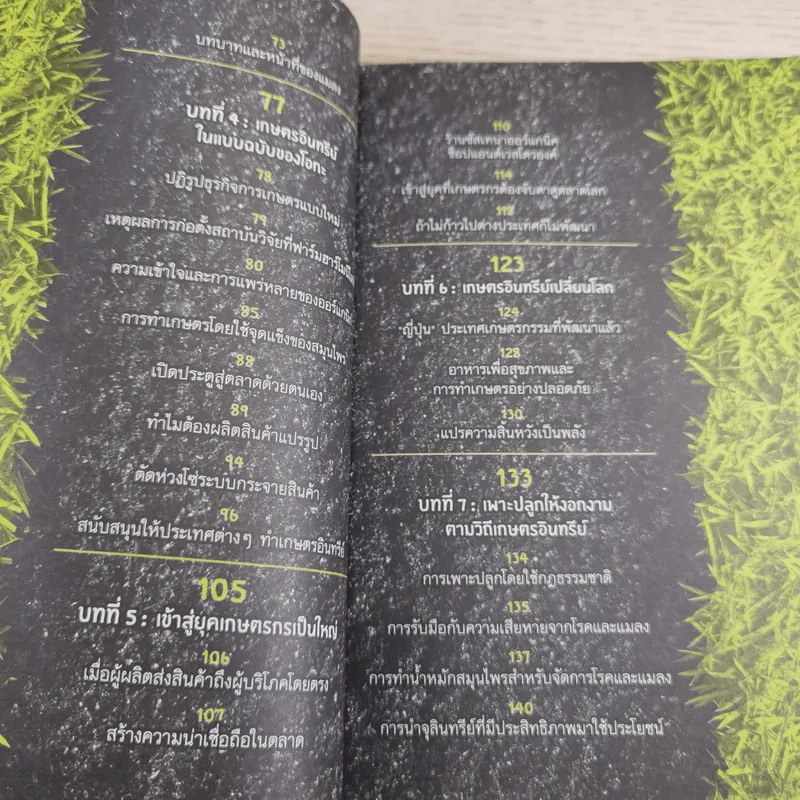 73
บทบาทและหน้าที่ของแมลง
77
บทที่ 4 : เกษตรอินทรีย์
ในแบบฉบับของโอทะ
78
ปฏิรูปธุรกิจการเกษตรแบบใหม่
79
เหตุผลการก่อตั้งสถาบันวิจัยที่ฟาร์มฮาร์โมนี
80
ความเข้าใจและการแพร่หลายของออร์แกนิก
85
การทำเกษตรโดยใช้จุดแข็งของสมุนไพร
88
เปิดประตูสู่ตลาดด้วยตนเอง
89
ทำไมต้องผลิตสินค้าแปรรูป
94
ตัดห่วงโซ่ระบบกระจายสินค้า
96
สนับสนุนให้ประเทศต่างๆ ทำเกษตรอินทรีย์
105
บทที่ 5 : เข้าสู่ยุคเกษตรกรเป็นใหญ่
106
เมื่อผู้ผลิตส่งสินค้าถึงผู้บริโภคโดยตรง
107
สร้างความน่าเชื่อถือในตลาด
110
ร้านซัสเทนาออร์แกนิค
ช็อปแอนด์เรสโตรองค์
114
เข้าสู่ยุคที่เกษตรกรต้องจับตาดูตลาดโลก
118
ถ้าไม่ก้าวไปต่างประเทศก็ไม่พัฒนา
123
บทที่ 6 : เกษตรอินทรีย์เปลี่ยนโลก
124
"ญี่ปุ่น" ประเทศเกษตรกรรมที่พัฒนาแล้ว
128
อาหารเพื่อสุขภาพและ
การทำเกษตรอย่างปลอดภัย
130
แปรความสิ้นหวังเป็นพลัง
133
บทที่ 7 : เพาะปลูกให้งอกงาม
ตามวิถีเกษตรอินทรีย์
134
การเพาะปลูกโดยใช้กฎธรรมชาติ
135
การรับมือกับความเสียหายจากโรคและแมลง
137
การทำน้ำหมักสมุนไพรสำหรับจัดการโรคและแมลง
140
การนำจุลินทรีย์ที่มีประสิทธิภาพมาใช้ประโยชน์